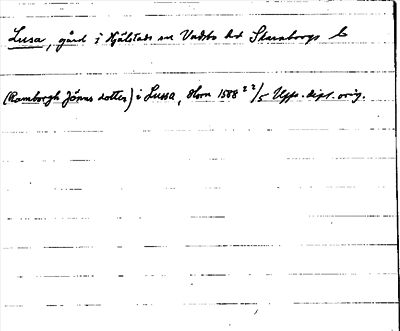 Lusa, gård i Hjälstads sn Vadsbo hd Skaraborgs l
(Ramborgh Jönns dotter) i Lussa, Horn 1508 22/5 Upps. dipl. orig.